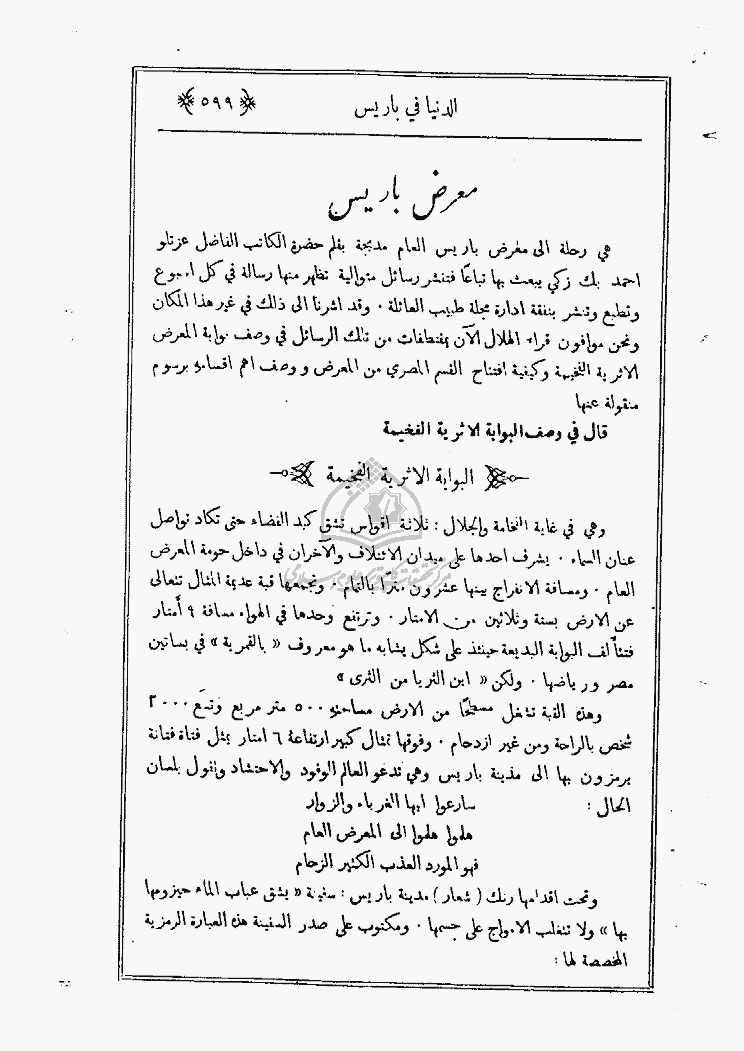 الدنيا في باريس ﴿٥٩٩﴾
معرض باريس
هي رحلة الى معرض باريس العام مدبجة بقلم حضرة الكاتب الفاضل عزتلو
احمد بك زكي يبعث بها تباعًا فتنشر رسائل متوالية تظهر منها رسالة في كل اسبوع
وتطبع وتنشر بنفقة ادارة مجلة طبيب العائلة ٠ وقد اشرنا الى ذلك في غير هذا المكان
ونحن موافون قراء الهلال الآن بمقتطفات من تلك الرسائل في وصف بوابة المعرض
الاثرية الفخيمة وكيفية افتتاح القسم المصري من المعرض ووصف اهم اقسامه برسوم
منقولة عنها
قال في وصف البوابة الاثرية الفخيمة
البوابة الاثرية الفخيمة
وهي في غاية الفخامة والجلال : ثلاثة اقواس تشق كبد الفضاء حتى تكاد تواصل
عنان السماء ٠ يشرف احدها على ميدان الائتلاف والآخران في داخل حومة المعرض
العام ٠ ومسافة الانفراج بينها عشرون مترًا بالتمام ٠ وتجمعها قبة عديمة المثال تتعالى
عن الارض بستة وثلاثين من الامتار ٠ وترتفع وحدها في الهواء مسافة ٩ أمتار
فتتألف البوابة البديعة حينئذ على شكل يشابه ما هو معروف « بالقمرية » في بساتين
مصر ورياضها ٠ ولكن « اين الثريا من الثرى »
وهذه القبة تشغل مسطحًا من الارض مساحته ٥٠٠ متر مربع وتسع ٢٠٠٠
شخص بالراحة ومن غير ازدحام ٠ وفوقها تمثال كبير ارتفاعهُ ٦ امتار يمثل فتاة فتانة
يرمزون بها الى مدينة باريس وهي تدعو العالم الوفود والاحتشاد وتقول بلسان
الحال :
سارعوا ايها الغرباء والزوار
هلموا هلموا الى المعرض العام
فهو المورد العذب الكثير الزحام
وتحت اقدامها رنك ( شعار ) مدينة باريس : سفينة « يشق عباب الماء حيزومها
بها » ولا تتغلب الامواج على جسمها ٠ ومكتوب على صدر السفينة هذه العبارة الرمزية
المخصصة لها :